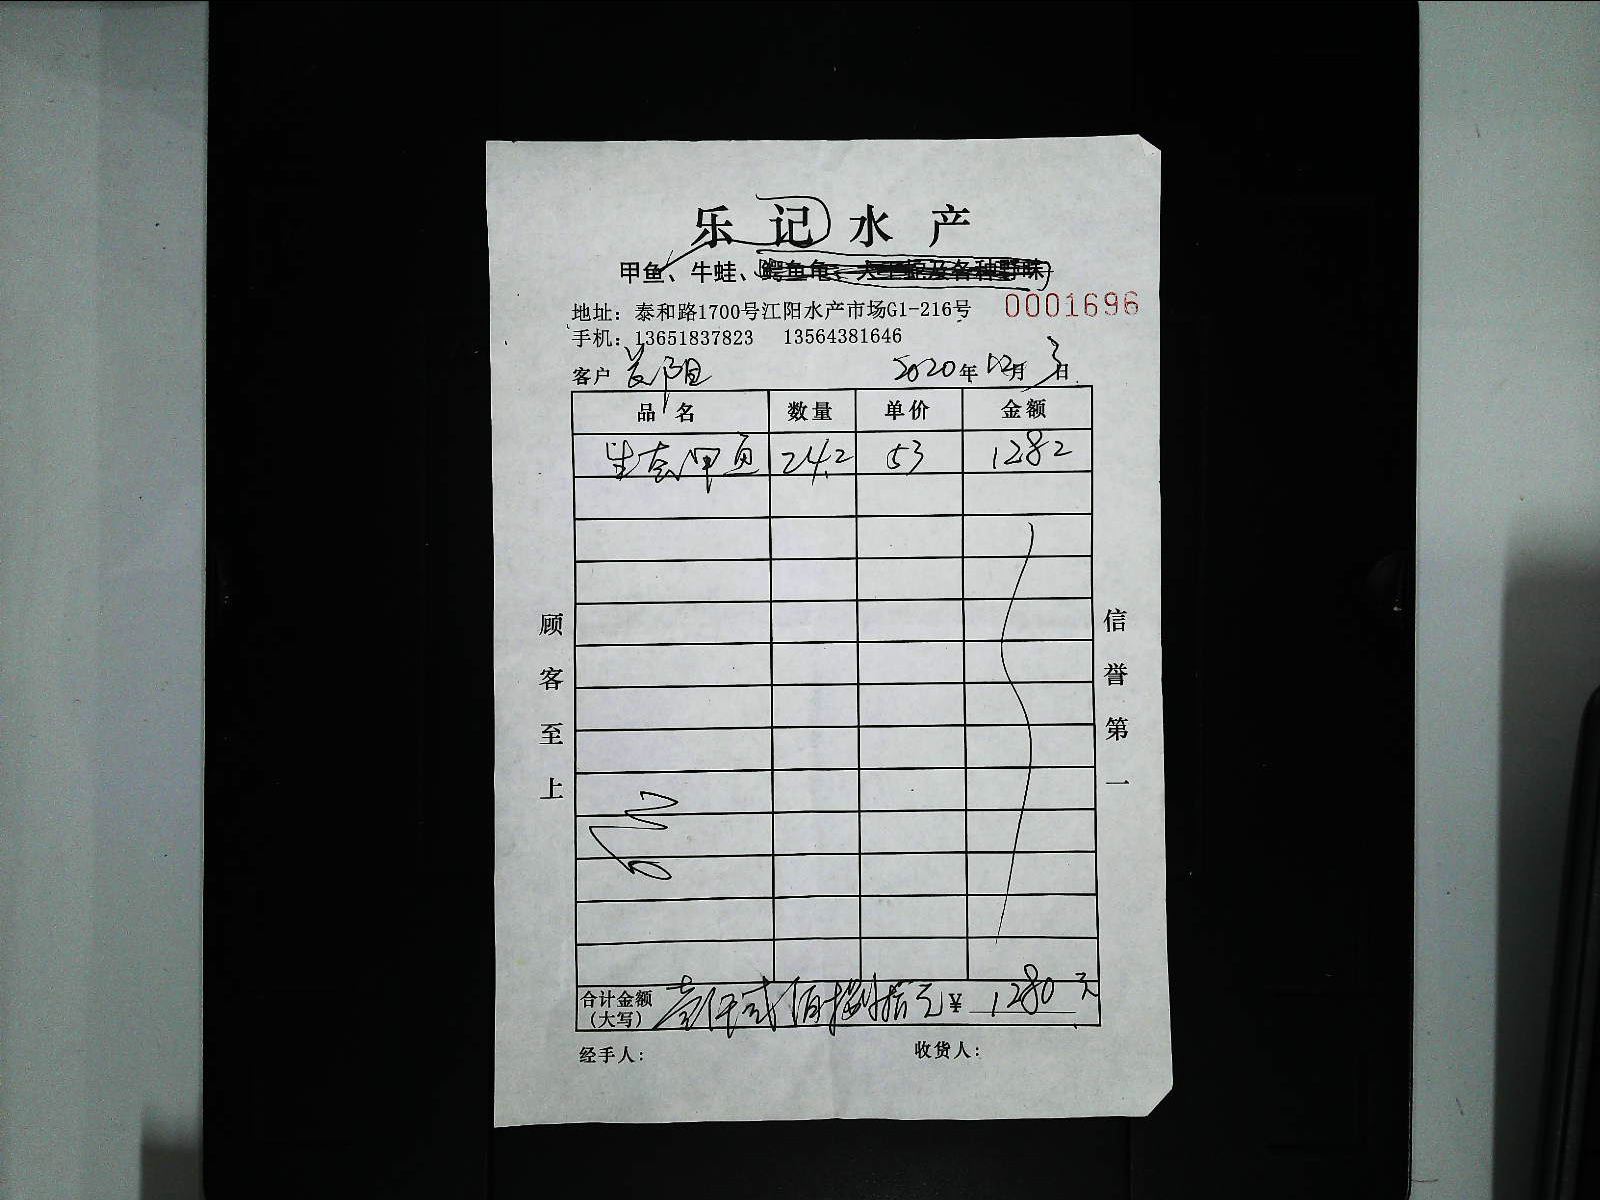 乐记水产
甲鱼、牛蛙、
地址：泰和路1700号江阳水产市场G1-216号 0001696
手机：13651837823 13564381646
客户 2020年12月3日
品名 数量 单价 金额
生态甲鱼 24.2 53 1282
顾客至上
信誉第一
合计金额（大写） 壹仟贰佰捌拾元 ¥ 1280元
经手人： 收货人：